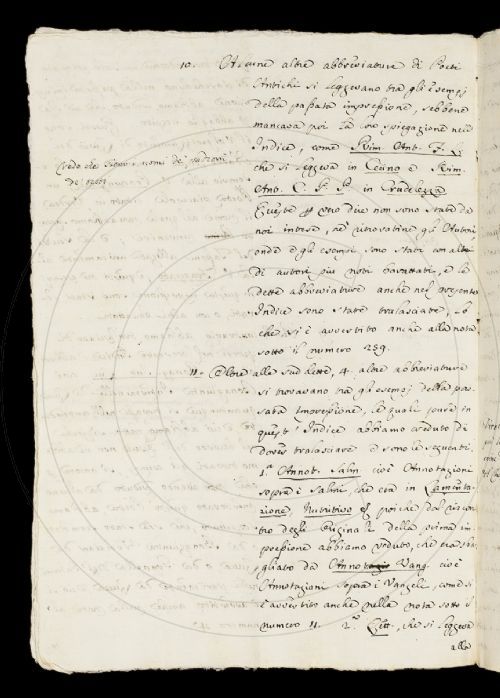 10. Alcune altre abbreviature di Poeti
Antichi si leggevano tra gli esempj
della passata impressione, sebbene
mancava poi la sua spiegazione nell'
Indice, come Rim. Ant. F. 
che si leggeva in Cecino e Rim.
Ant. C. F. in Crudelezza
Credo che siano i nomi de' padroni
de' codici
Queste però due non sono state da
noi intese, nè ritrovatine gli Autori
onde e gli esempi sono stati con altri
di autori più noti barattati, e le
dette abbreviature anche nel presente
Indice sono state tralasciate, lo
che si è avvertito anche alla nota
sotto il numero 289.
11. Oltre alle suddette, 4. altre abbreviature
si trovavano tra gli esempj della pas-
sata impressione, le quali pure in
quest' Indice abbiamo creduto di
dover tralasciare e sono le seguenti.
1.a Annot. Salm cioè Annotazioni
sopra i Salmi, che era in
Nutritivo poichè dal riscon-
tro degli Originali della prima im-
pressione abbiamo veduto, che era sba-
gliato da Annot Vang. cioè
Annotazioni sopra i Vangeli, come si
è avvertito anche nella nota sotto il
numero 11. 2.a che si leggeva
alla